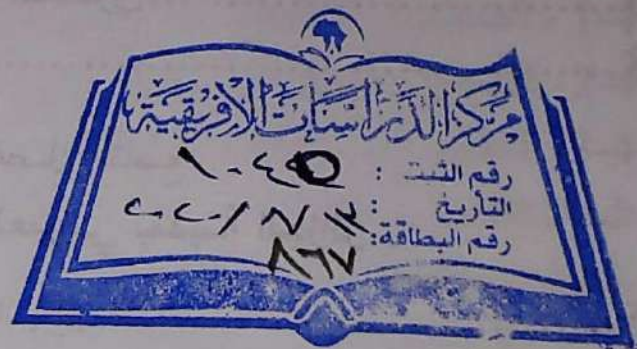 مركز الدراسات الأفريقية
رقم الثبت : ١٠٤٥
التأريخ :
رقم البطاقة: ٨٦٧